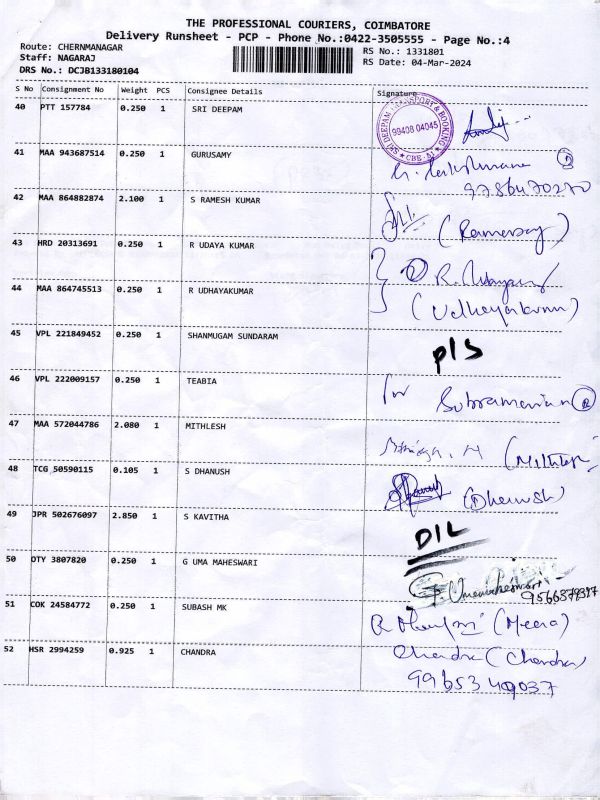 THE PROFESSIONAL COURIERS, COIMBATORE
Delivery Runsheet - PCP - Phone No.:0422-3505555 - Page No.:4
Route: CHERNMANAGAR
RS No.: 1331801
Staff: NAGARAJ
RS Date: 04-Mar-2024
DRS No.: DCJB133180104
S No Consignment No Weight PCS Consignee Details Signature
40 PTT 157784 0.250 1 SRI DEEPAM
SRI DEEPAM TRANSPORT & BOOKING
99408 04045
CBE
41 MAA 943687514 0.250 1 GURUSAMY
9786470270
42 MAA 864882874 2.100 1 S RAMESH KUMAR
43 HRD 20313691 0.250 1 R UDAYA KUMAR
44 MAA 864745513 0.250 1 R UDHAYAKUMAR
(Udhayakumar)
45 VPL 221849452 0.250 1 SHANMUGAM SUNDARAM P/S
46 VPL 222009157 0.250 1 TEABIA for Subramanian
47 MAA 572044786 2.080 1 MITHLESH
48 TCG 50590115 0.105 1 S DHANUSH (Dhanush)
49 JPR 502676097 2.850 1 S KAVITHA D/L
50 OTY 3807820 0.250 1 G UMA MAHESWARI
51 COK 24584772 0.250 1 SUBASH MK (Meera)
52 HSR 2994259 0.925 1 CHANDRA Chandra (Chandra)
9965349037